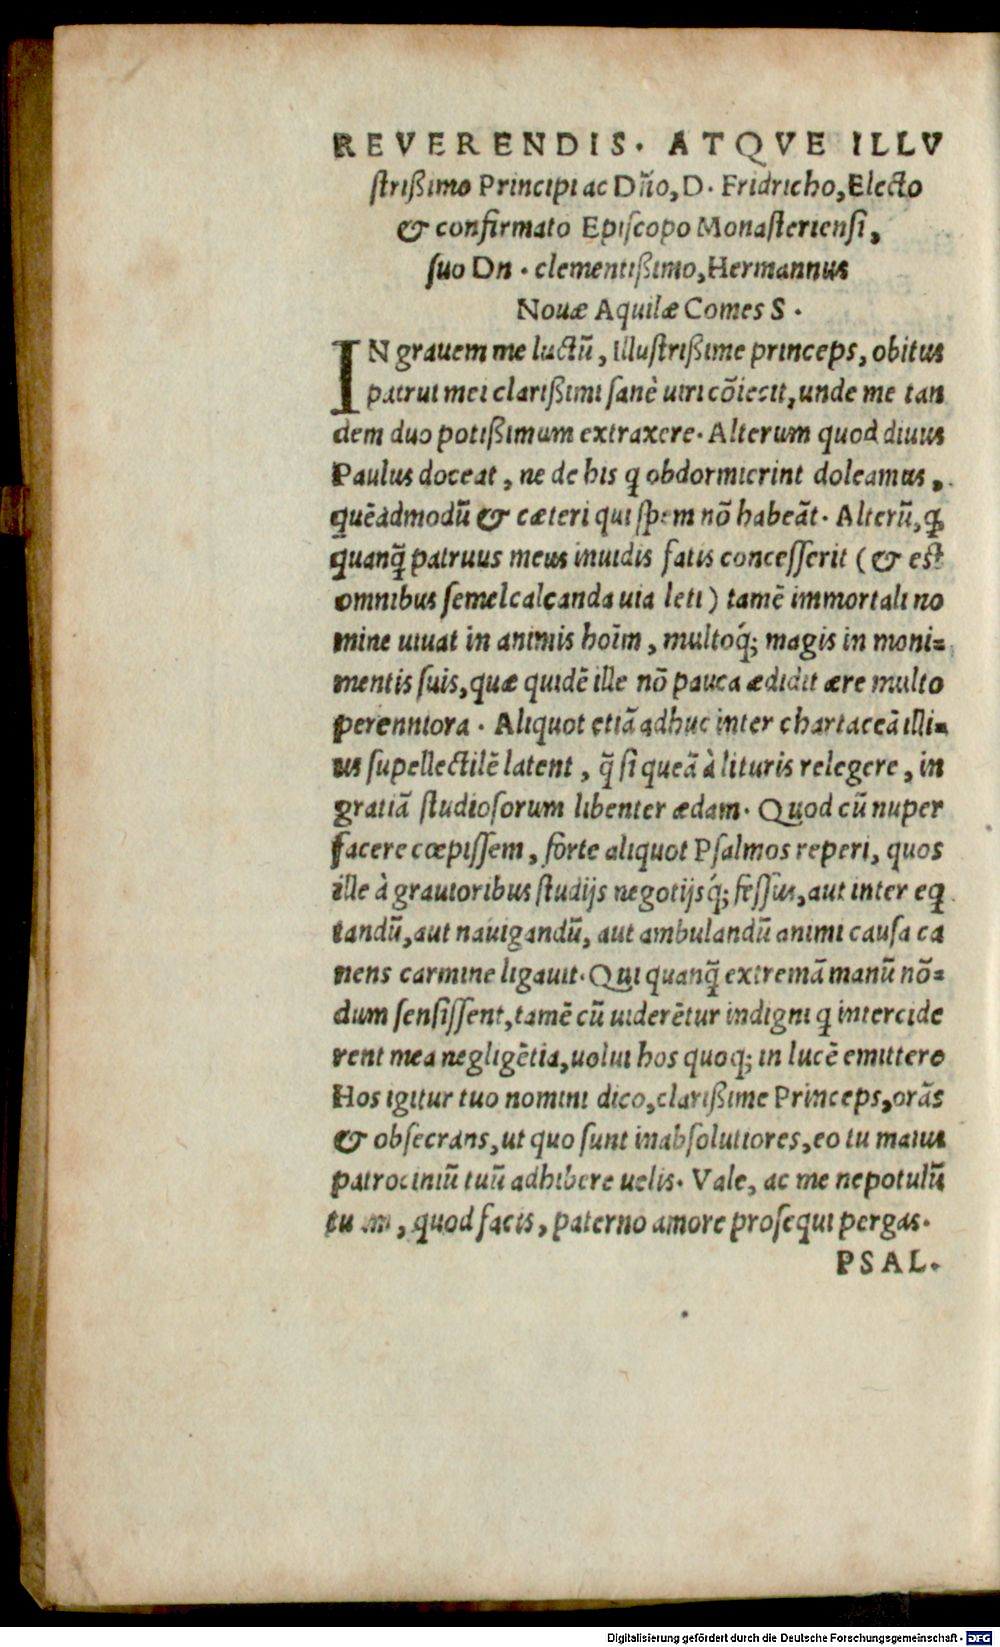 REVERENDIS. ATQVE ILLV
ſtrißimo Principi ac Dño, D. Fridricho, Electo
& confirmato Epiſcopo Monaſterienſi,
ſuo Dn. clementißimo, Hermannus
Nouæ Aquilæ Comes S.
IN grauem me luctũ, illuſtrißime princeps, obitus
patrui mei clarißimi ſanè uiri cõiecit, unde me tan
dem duo potißimum extraxere. Alterum quod diuus
Paulus doceat, ne de his q̃ obdormierint doleamus,
quẽadmodũ & cæteri qui ſpem nõ habeãt. Alterũ, ꝙ
quanq̃ patruus meus inuidis fatis conceſſerit (& eſt
omnibus ſemel calcanda uia leti) tamẽ immortali no
mine uiuat in animis hoĩm, multoq́; magis in moni=
mentis ſuis, quæ quidẽ ille nõ pauca ædidit ære multo
perenniora. Aliquot etiã adhuc inter chartaceã illi=
us ſupellectilẽ latent, q̃ ſi queã à lituris relegere, in
gratiã ſtudioſorum libenter ædam. Quod cũ nuper
facere cœpiſſem, forte aliquot Pſalmos reperi, quos
ille à grauioribus ſtudijs negotijsq́; feſſus, aut inter eq
tandũ, aut nauigandũ, aut ambulandũ animi cauſa ca
nens carmine ligauit. Qui quanq̃ extremã manũ nõ=
dum ſenſiſſent, tamẽ cũ uiderẽtur indigni q̃ intercide
rent mea negligẽtia, uolui hos quoq; in lucẽ emittere
Hos igitur tuo nomini dico, clarißime Princeps, orãs
& obſecrans, ut quo ſunt inabſolutiores, eo tu maius
patrociniũ tuũ adhibere uelis. Vale, ac me nepotulũ
tuum, quod facis, paterno amore proſequi pergas.
PSAL.
Digitalisierung gefördert durch die Deutsche Forschungsgemeinschaft - DFG